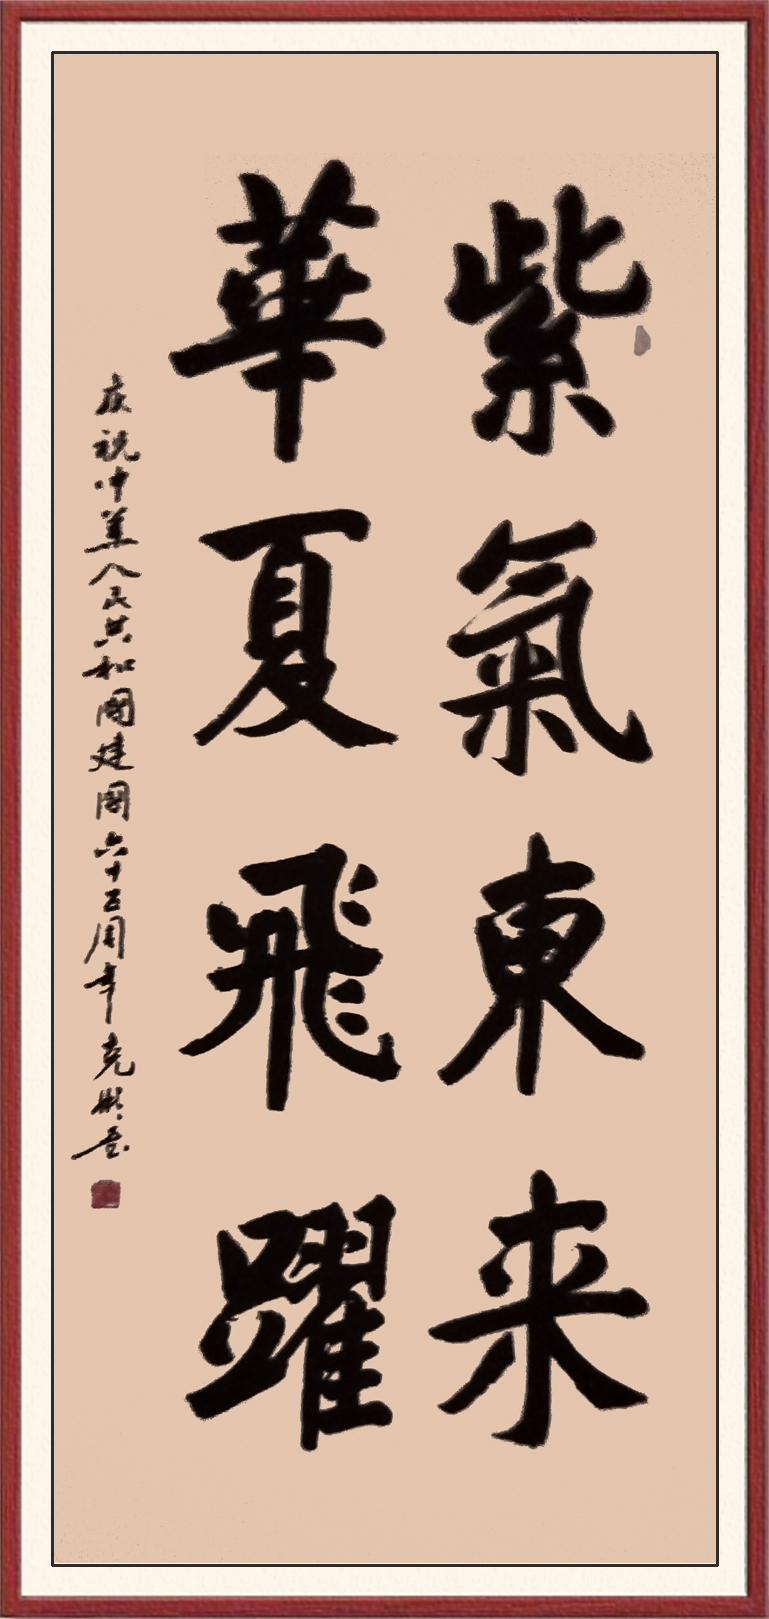 紫氣東来
華夏飛躍
庆祝中華人民共和國建國六十五周年 克彬书